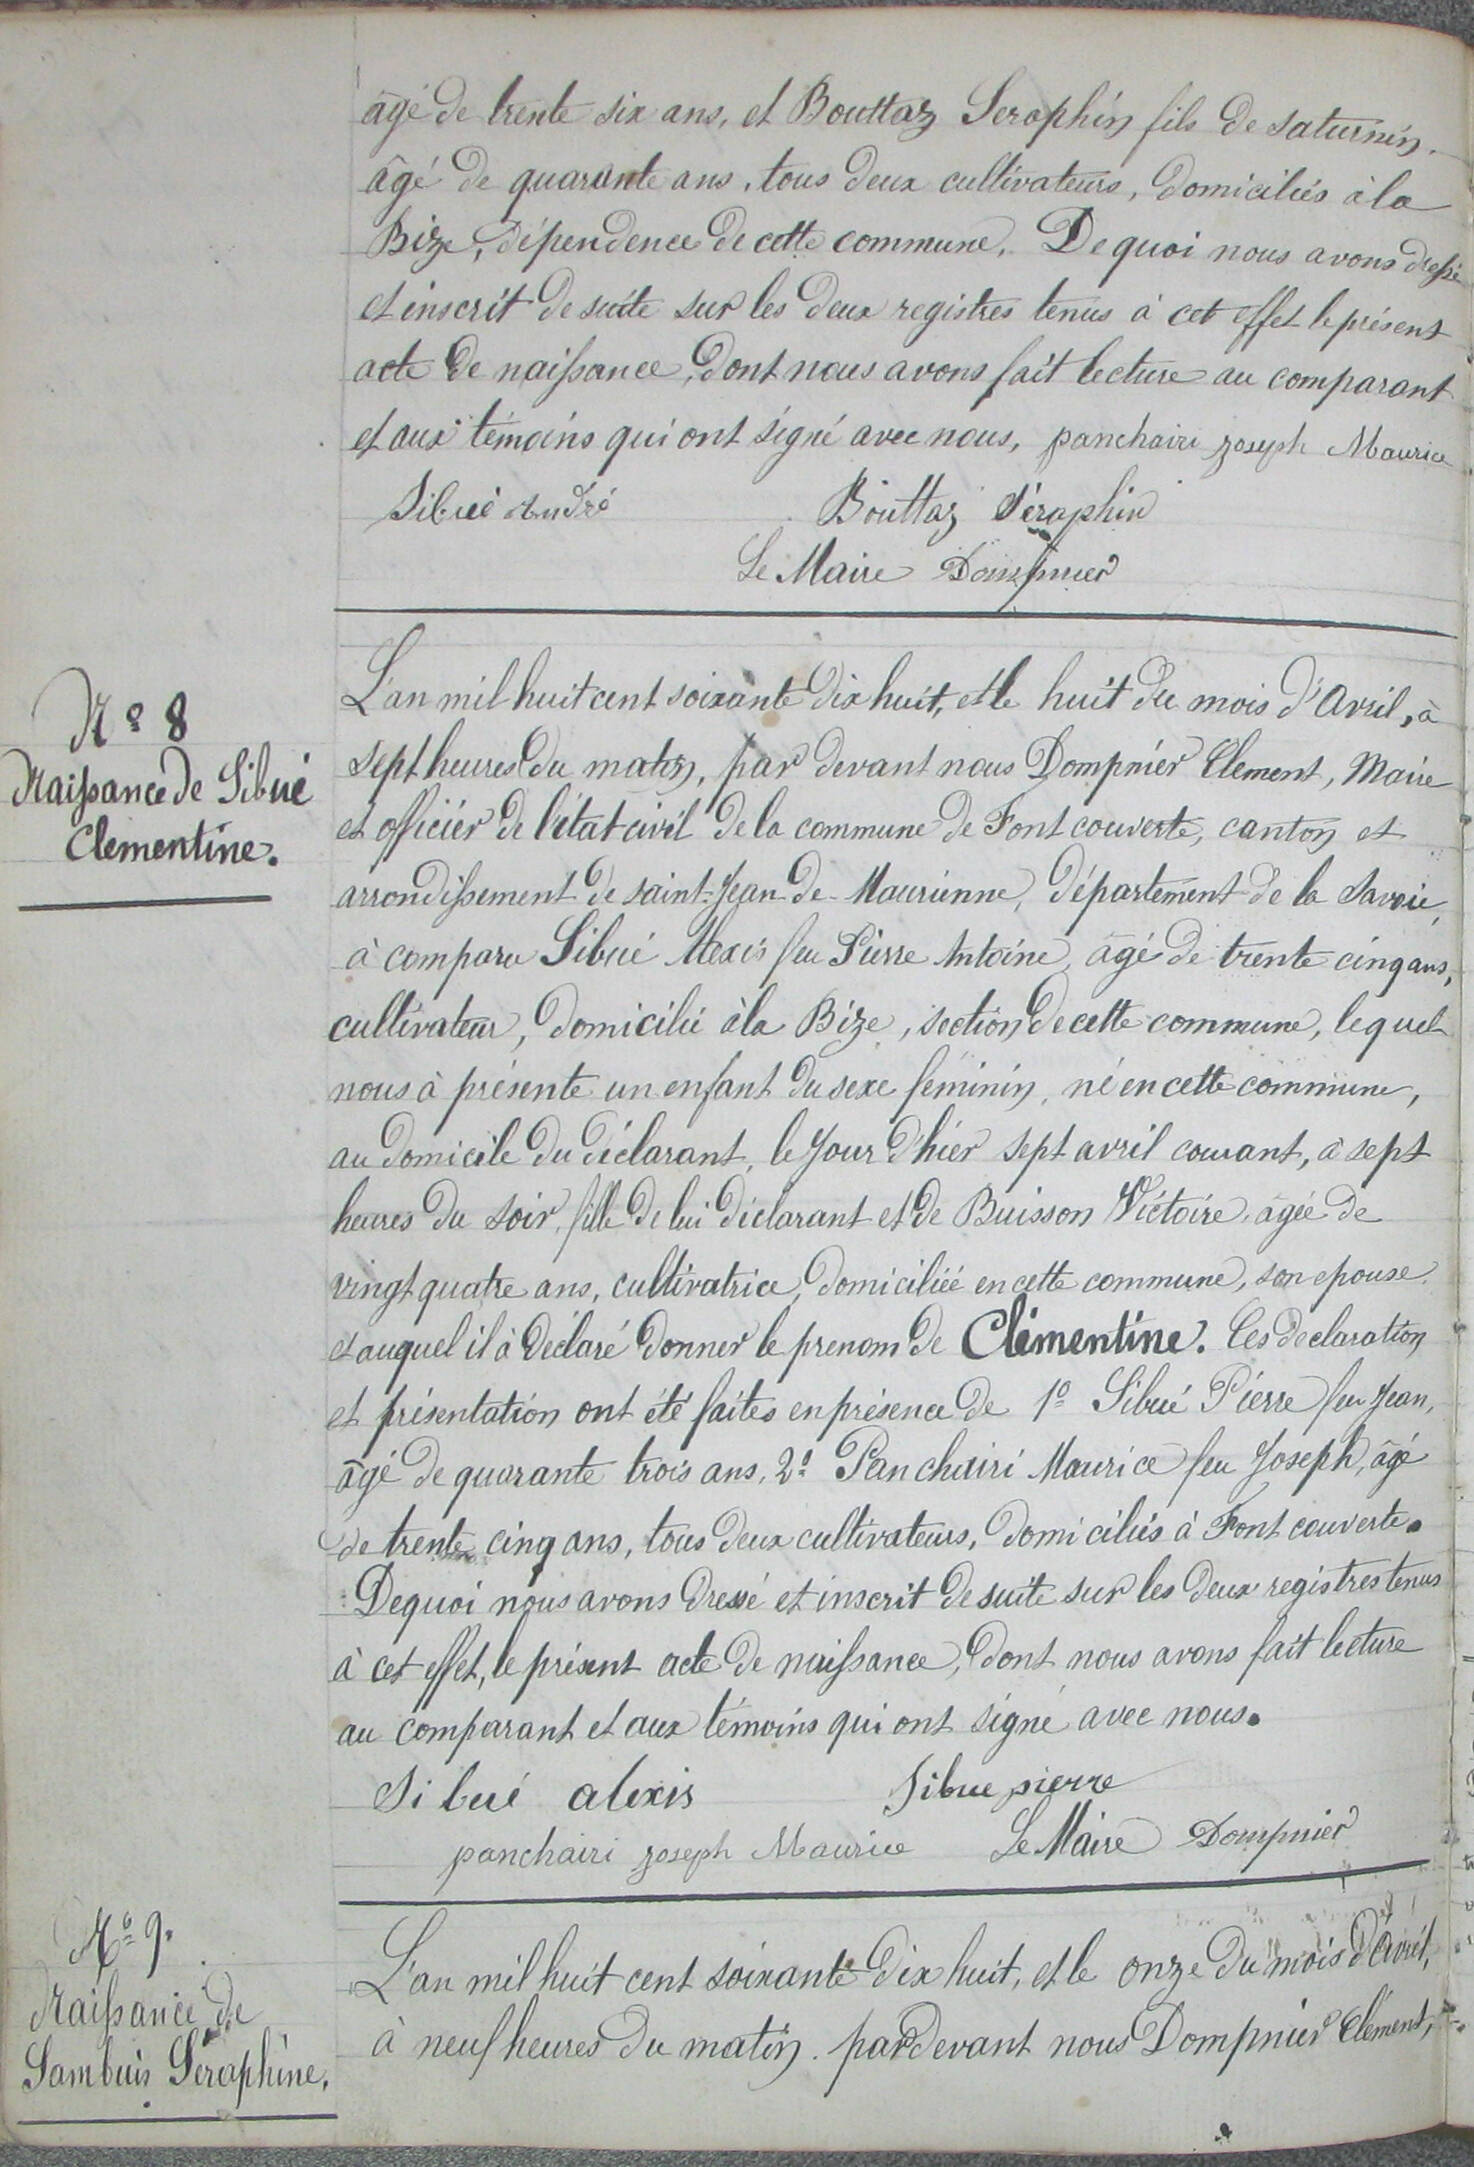 âgé de trente six ans, et Bouttaz Seraphin fils de saturnin.
âgé de quarante ans, tous deux cultivateurs, domiciliés à la
Bize, dépendence de cette commune. De quoi nous avons dressé
et inscrit de suite sur les deux registres tenus à cet effet le présent
acte de naissance, dont nous avons fait lecture au comparant
et aux témoins qui ont signé avec nous, panchairi joseph Maurice
Sibué André Bouttaz Séraphin
Le Maire Dompnier
N° 8
Naissance de Sibué
Clementine.
L'an mil huit cent soixante dix huit, et le huit du mois d'Avril, à
sept heures du matin, par devant nous Dompnier Clement, Maire
et officier de l'état civil de la commune de Font couverte, canton et
arrondissement de saint-Jean-de-Maurienne, département de la Savoie,
à comparu Sibué Alexis feu Pierre Antoine, âgé de trente cinq ans,
cultivateur, domicilié à la Bize, section de cette commune, lequel
nous à présente un enfant du sexe féminin, né en cette commune,
au domicile du déclarant, le jour d'hier sept avril courant, à sept
heures du soir, fille de lui déclarant et de Buisson Victoire, âgée de
vingt quatre ans, cultivatrice, domiciliée en cette commune, son epouse
et auquel il à déclaré donner le prenom de Clémentine. Ces declaration
et présentation ont été faites en présence de 1° Sibué Pierre feu Jean,
âgé de quarante trois ans, 2° Panchairi Maurice feu Joseph, âgé
de trente cinq ans, tous deux cultivateurs, domiciliés à Font couverte.
De quoi nous avons dressé et inscrit de suite sur les deux registres tenus
à cet effet, le présent acte de naissance, dont nous avons fait lecture
au comparant et aux témoins qui ont signé avec nous.
Sibué alexis Sibue pierre
panchairi joseph Maurice Le Maire Dompnier
N° 9.
Naissance de
Sambuis Séraphine.
L'an mil huit cent soixante dix huit, et le onze du mois d'Avril,
à neuf heures du matin. par devant nous Dompnier Clément,